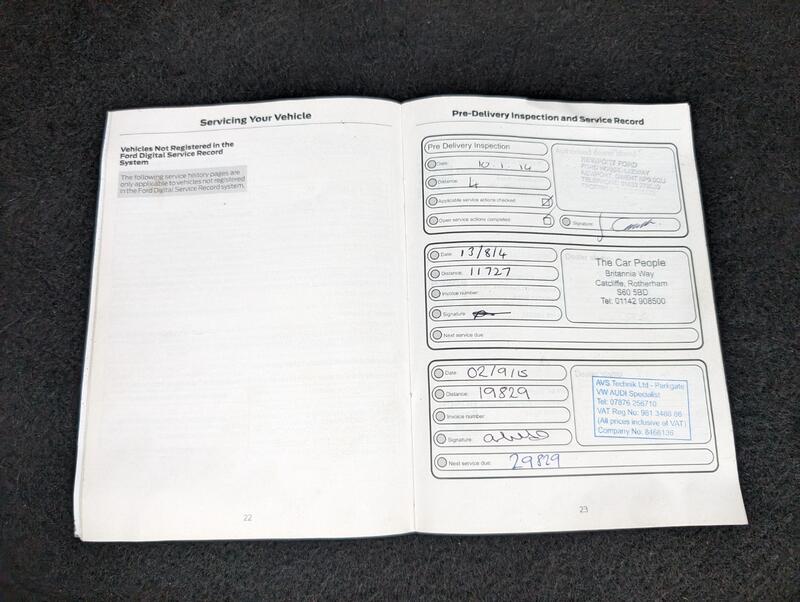 Servicing Your Vehicle
Vehicles Not Registered in the
Ford Digital Service Record
System
The following service history pages are
only applicable to vehicles not registered
in the Ford Digital Service Record system.
22
Pre-Delivery Inspection and Service Record
Pre Delivery Inspection
Date: 10.1.14
Distance: 4
Applicable service actions checked
Open service actions completed
NEWPORT FORD
Signature:
Date: 13/8/4
Distance: 11727
Invoice number:
Signature:
Next service due:
The Car People
Britannia Way
Catcliffe, Rotherham
S60 5BD
Tel: 01142 908500
Date: 02/9/15
Distance: 19829
Invoice number:
Signature:
Next service due: 29829
AVS Technik Ltd - Parkgate
VW AUDI Specialist
Tel: 07876 256710
VAT Reg No: 981 3488 86
(All prices inclusive of VAT)
Company No: 8466136
23